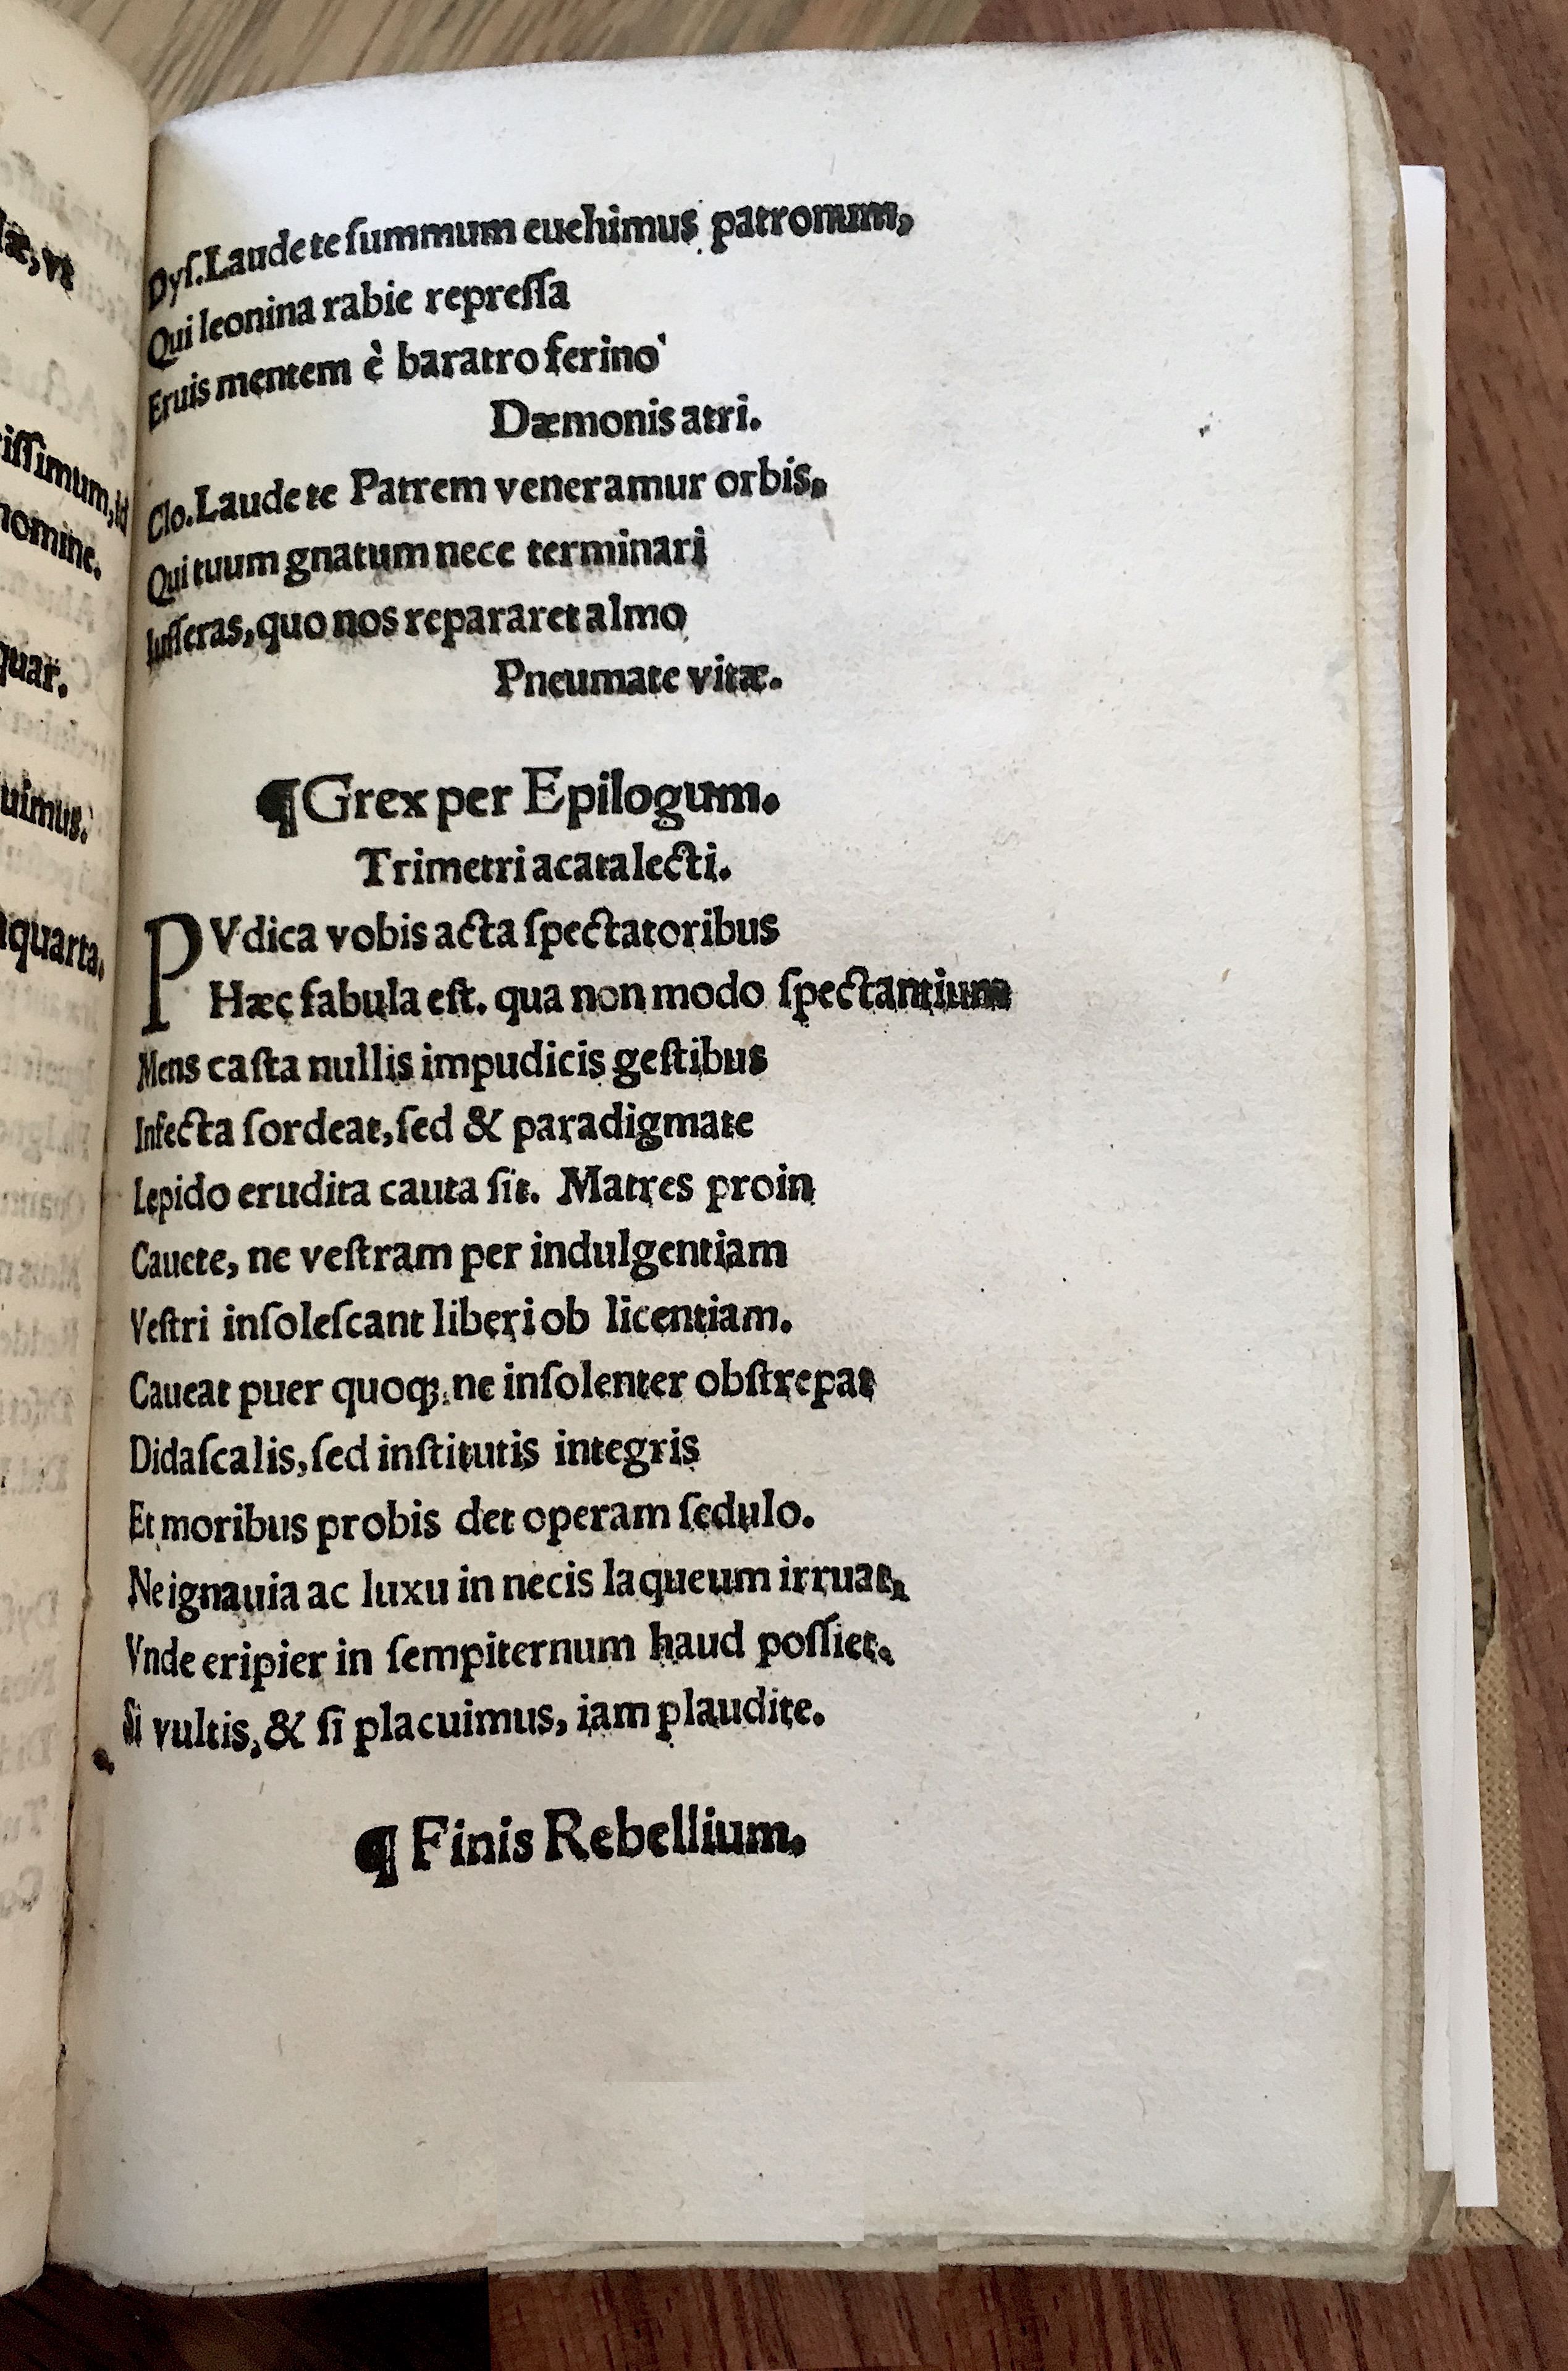 læ, vt
issimum, id
nomine.
quar.
uimus.
quarta.
Dyſ. Laude te ſummum euehimus patronum,
Qui leonina rabie repreſſa
Eruis mentem è baratro ferino
Dæmonis atri.
Clo. Laude te Patrem veneramur orbis,
Qui tuum gnatum nece terminari
Iuſſeras, quo nos repararet almo
Pneumate vitæ.
¶ Grex per Epilogum.
Trimetri acatalecti.
PVdica vobis acta ſpectatoribus
Hæc fabula eſt. qua non modo ſpectantium
Mens caſta nullis impudicis geſtibus
Infecta ſordeat, ſed & paradigmate
Lepido erudita cauta ſit. Matres proin
Cauete, ne veſtram per indulgentiam
Veſtri inſoleſcant liberi ob licentiam.
Caueat puer quoqꝫ ne inſolenter obſtrepat
Didaſcalis, ſed inſtitutis integris
Et moribus probis det operam ſedulo.
Ne ignauia ac luxu in necis laqueum irruat,
Vnde eripier in ſempiternum haud poſſiet.
Si vultis, & ſi placuimus, iam plaudite.
¶ Finis Rebellium.